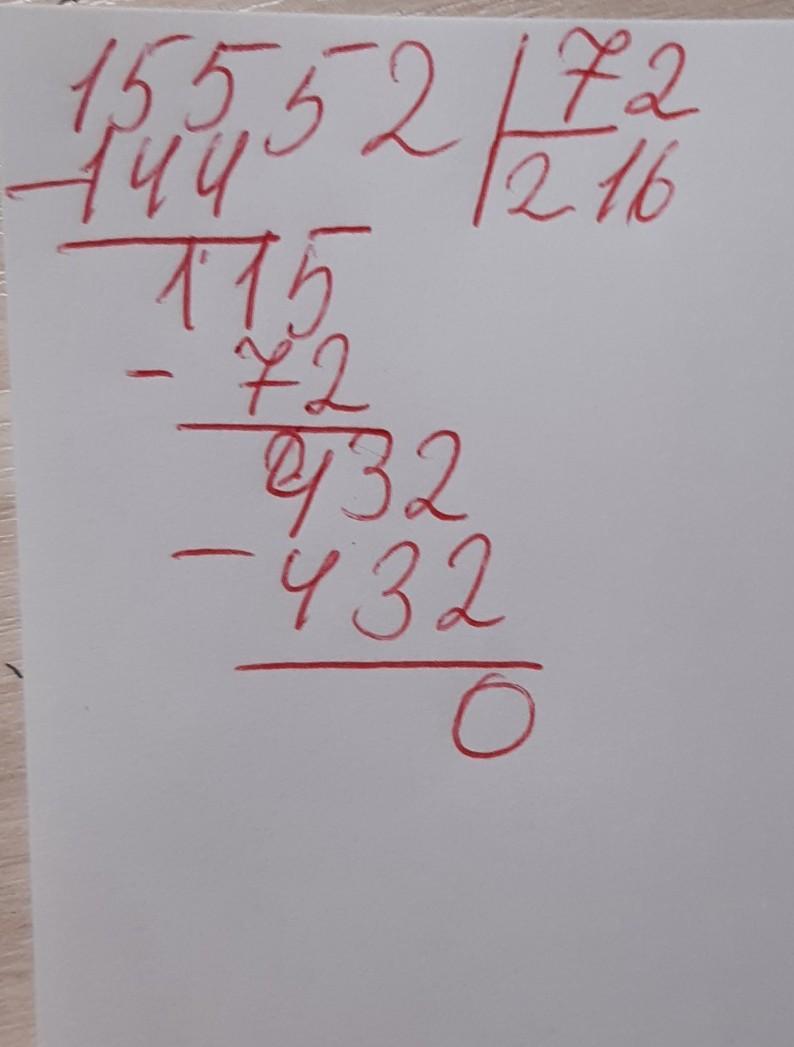 15552 72
-144 216
115
- 72
432
- 432
0